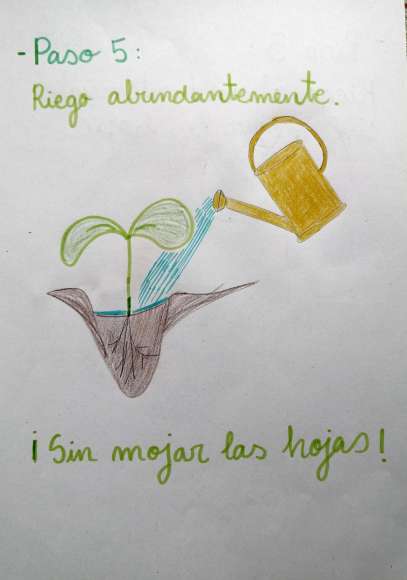 - Paso 5:
Riego abundantemente.
¡Sin mojar las hojas!